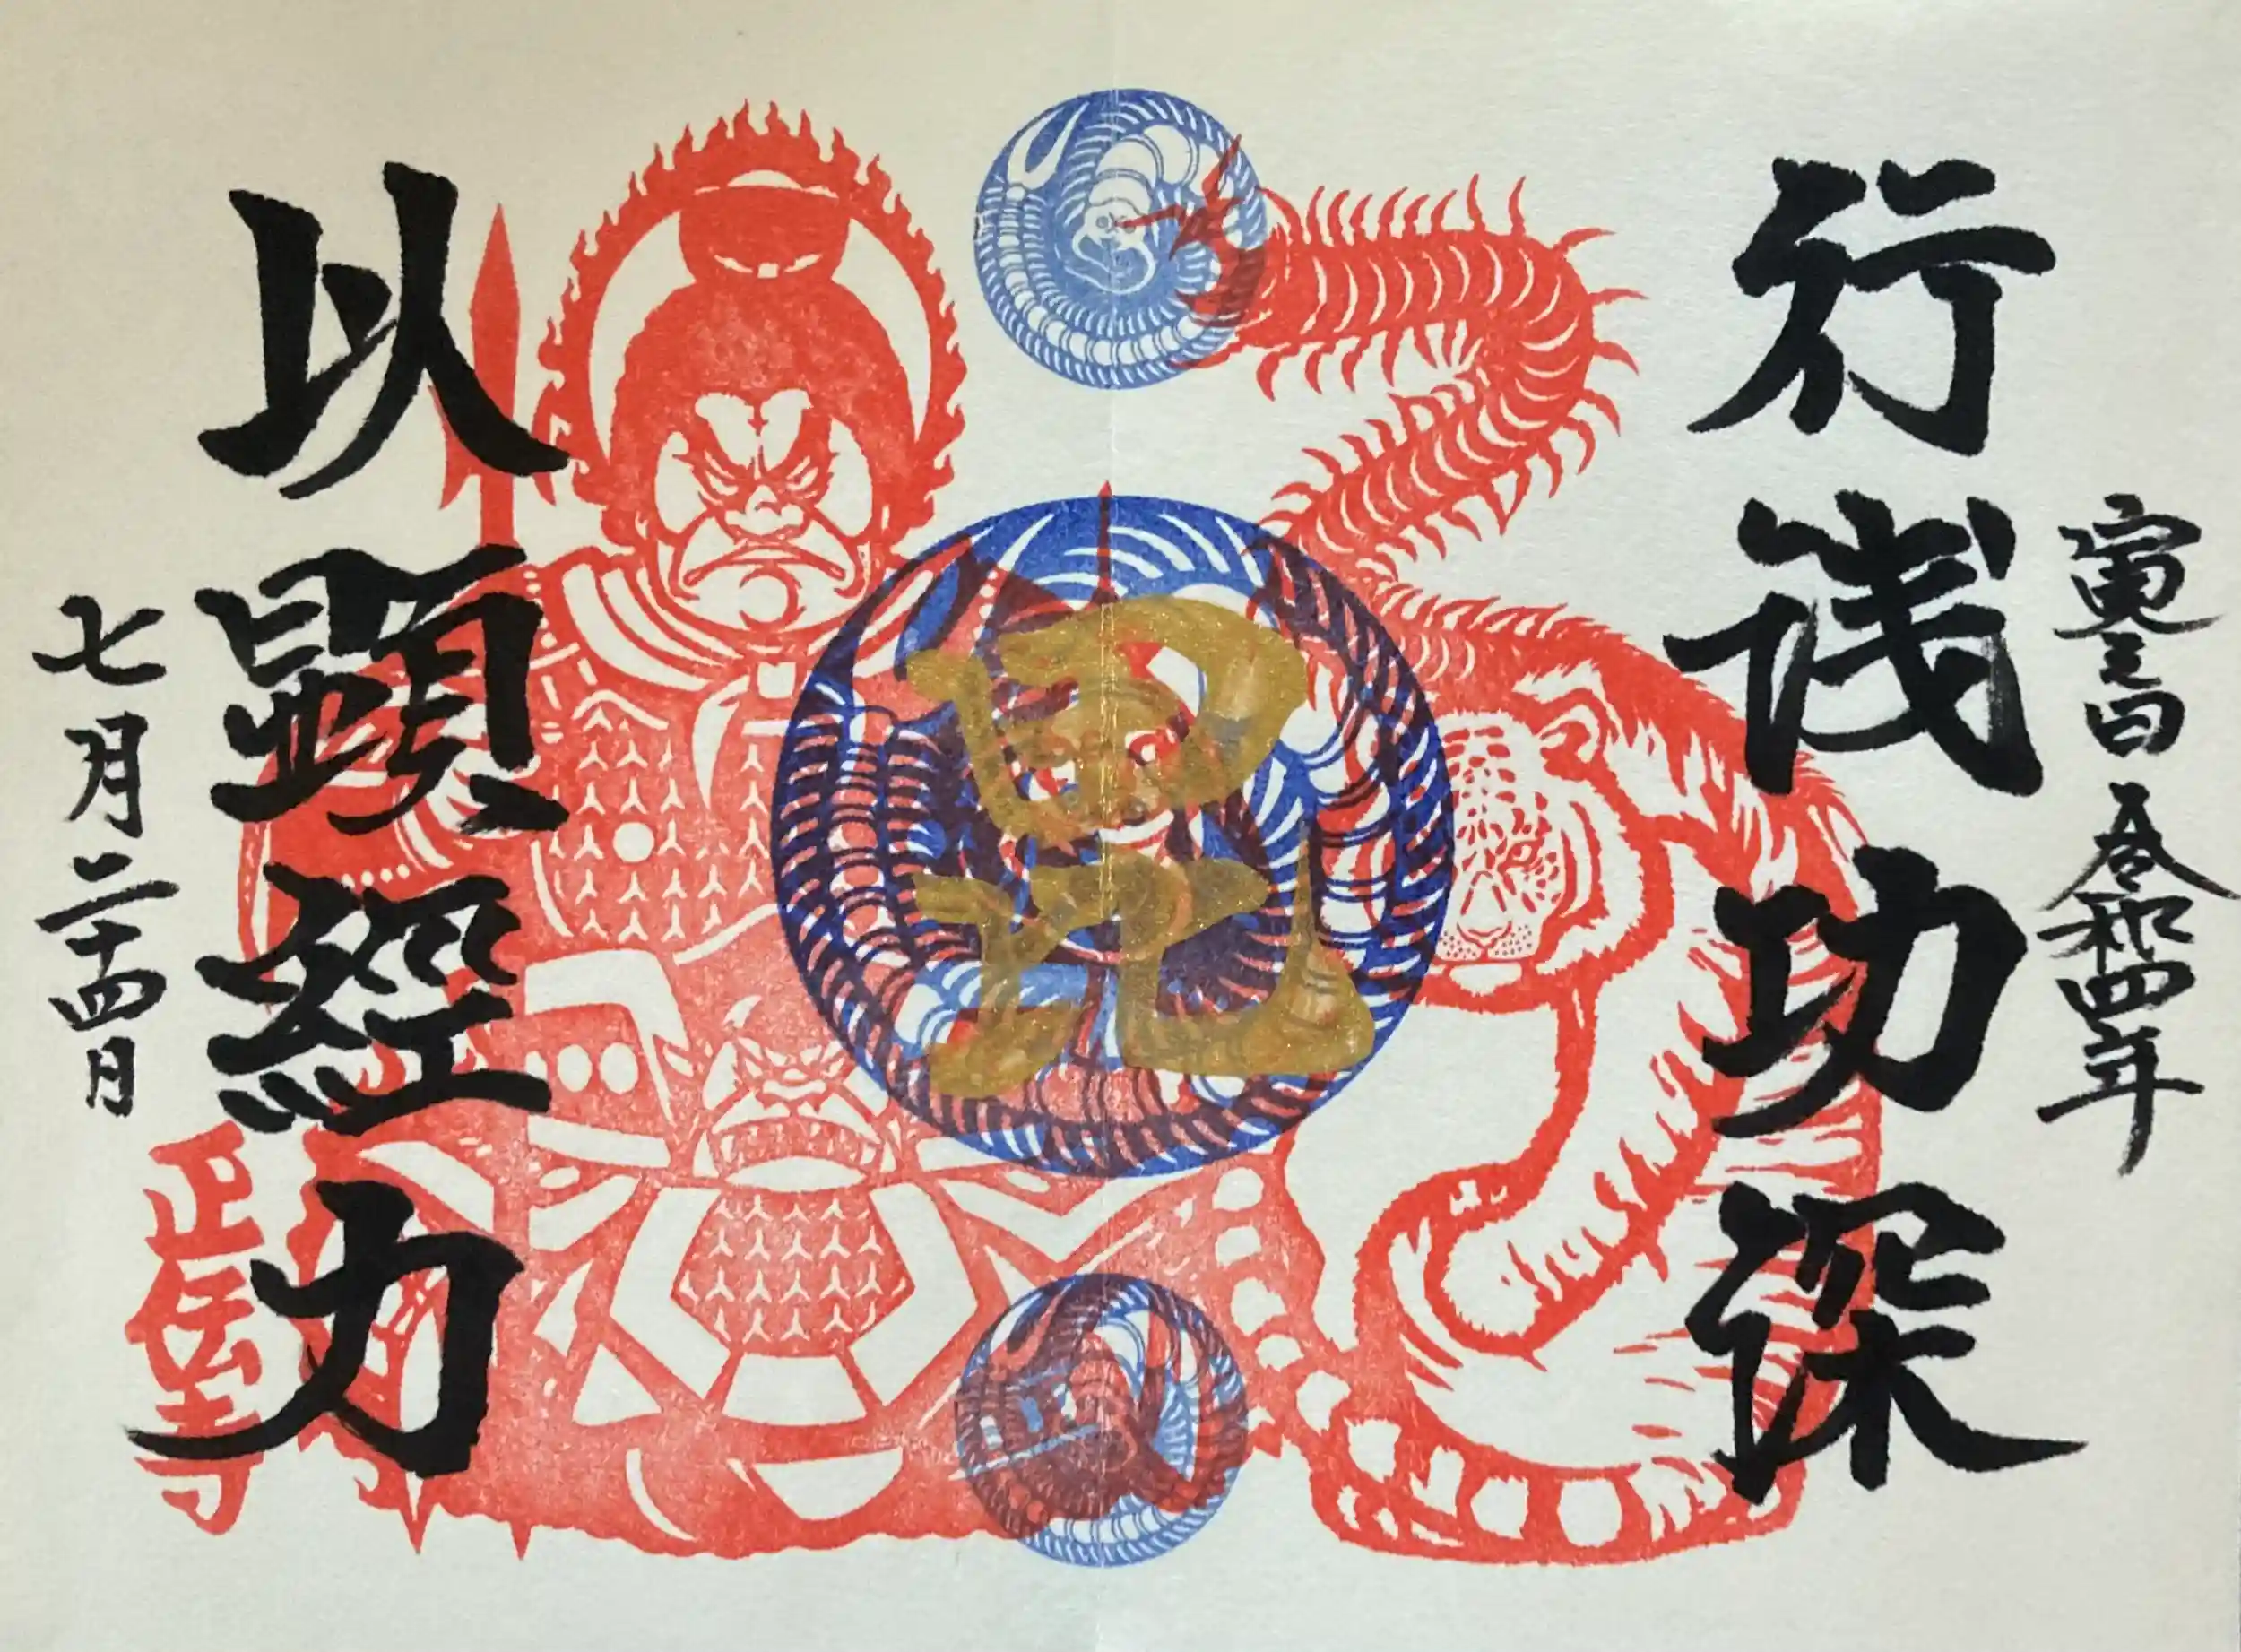 寅之日 令和四年
行浅功深
毘
以顕經力
七月二十四日
正伝寺